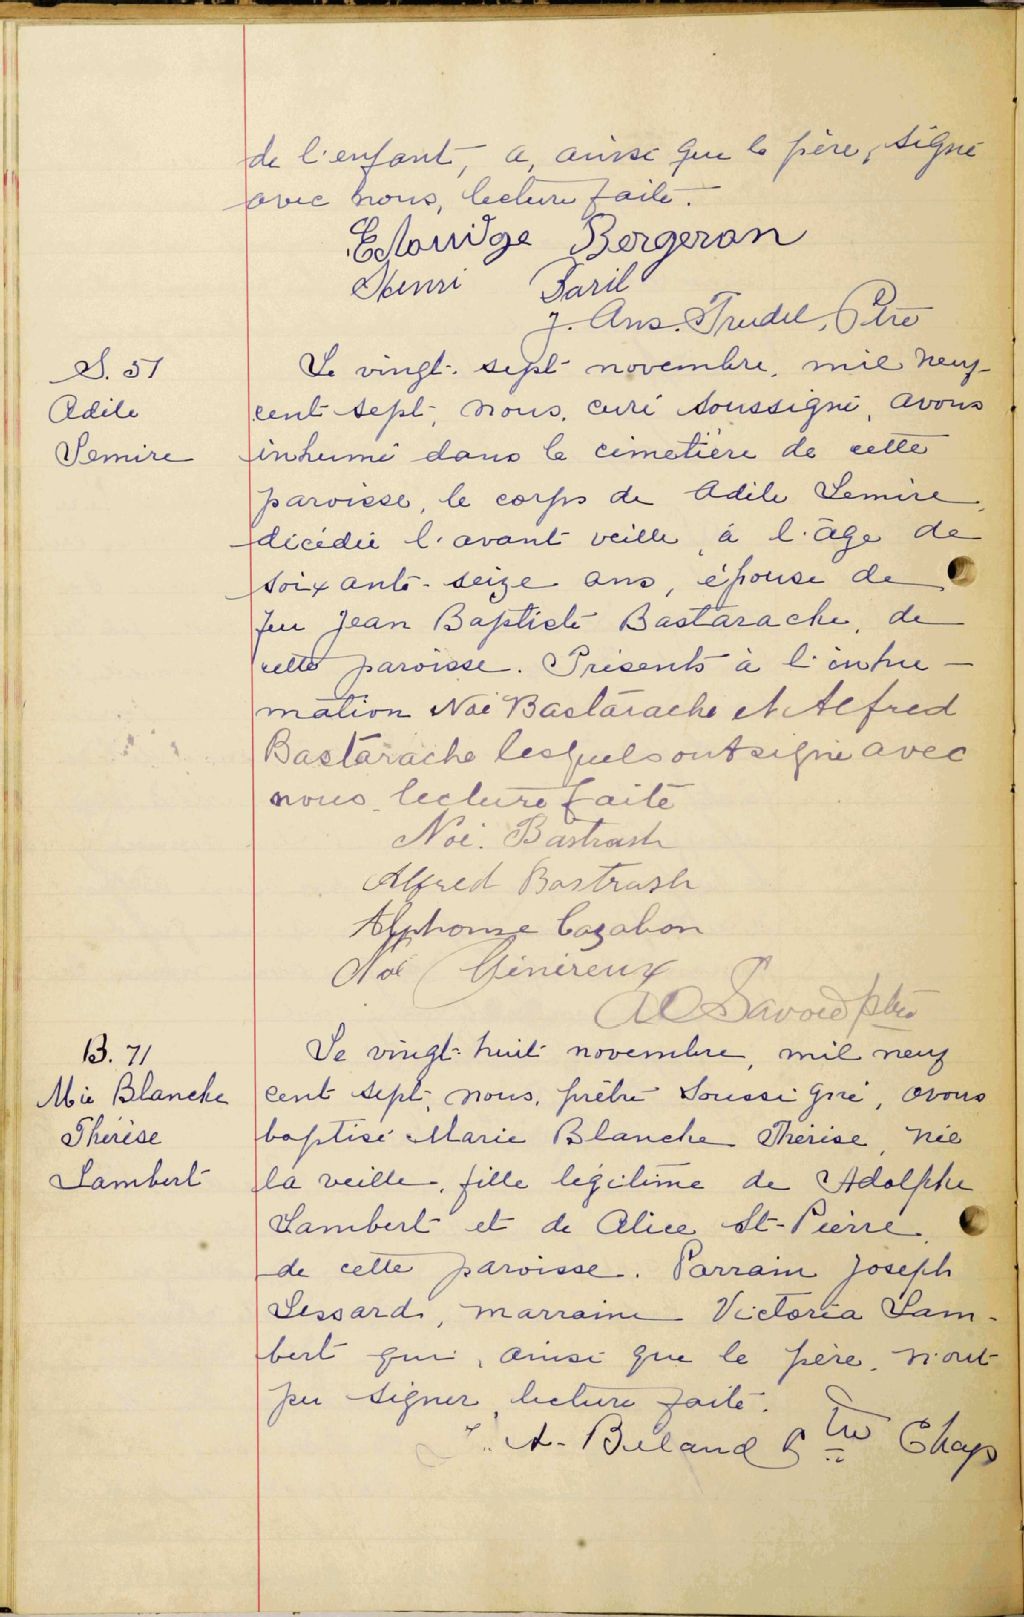 de l'enfant, a, ainsi que le père, signé
avec nous, lecture faite.
Bergeron
Henri Baril
J. Ans. Trudel, Ptre
S. 51
Adèle
Lemire
Le vingt-sept novembre, mil neuf
cent sept, nous, curé soussigné, avons
inhumé dans le cimetière de cette
paroisse, le corps de Adèle Lemire,
décédée l'avant veille, à l'âge de
soixante-seize ans, épouse de
feu Jean Baptiste Bastarache, de
cette paroisse. Présents à l'inhu-
mation Noé Bastarache et Alfred
Bastarache lesquels ont signé avec
nous lecture faite
Noé. Bastrash
Alfred Bastrash
Alphonse Cazabon
Noé Généreux
Savoie ptre
B. 71
Mie Blanche
Thérèse
Lambert
Le vingt-huit novembre, mil neuf
cent sept, nous, prêtre soussigné, avons
baptisé Marie Blanche Thérèse, née
la veille, fille légitime de Adolphe
Lambert et de Alice St-Pierre,
de cette paroisse. Parrain Joseph
Lessard, marraine Victoria Lam-
bert qui, ainsi que le père, n'ont
pu signer, lecture faite.
A. Béland Ptre Chap